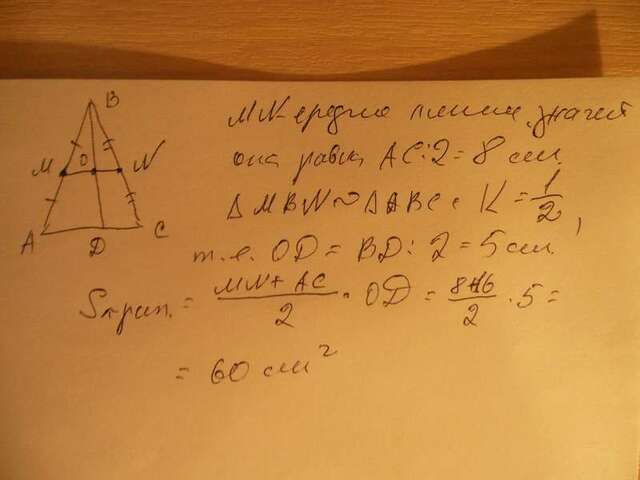 B
M O N
A D C
MN средне линия, значит
она равна AC:2=8 см.
△MBN∾△ABC с K=1/2,
т.е. OD=BD:2=5см.
Sтрап.=(MN+AC)/2·OD=(8+16)/2·5=
=60 см²